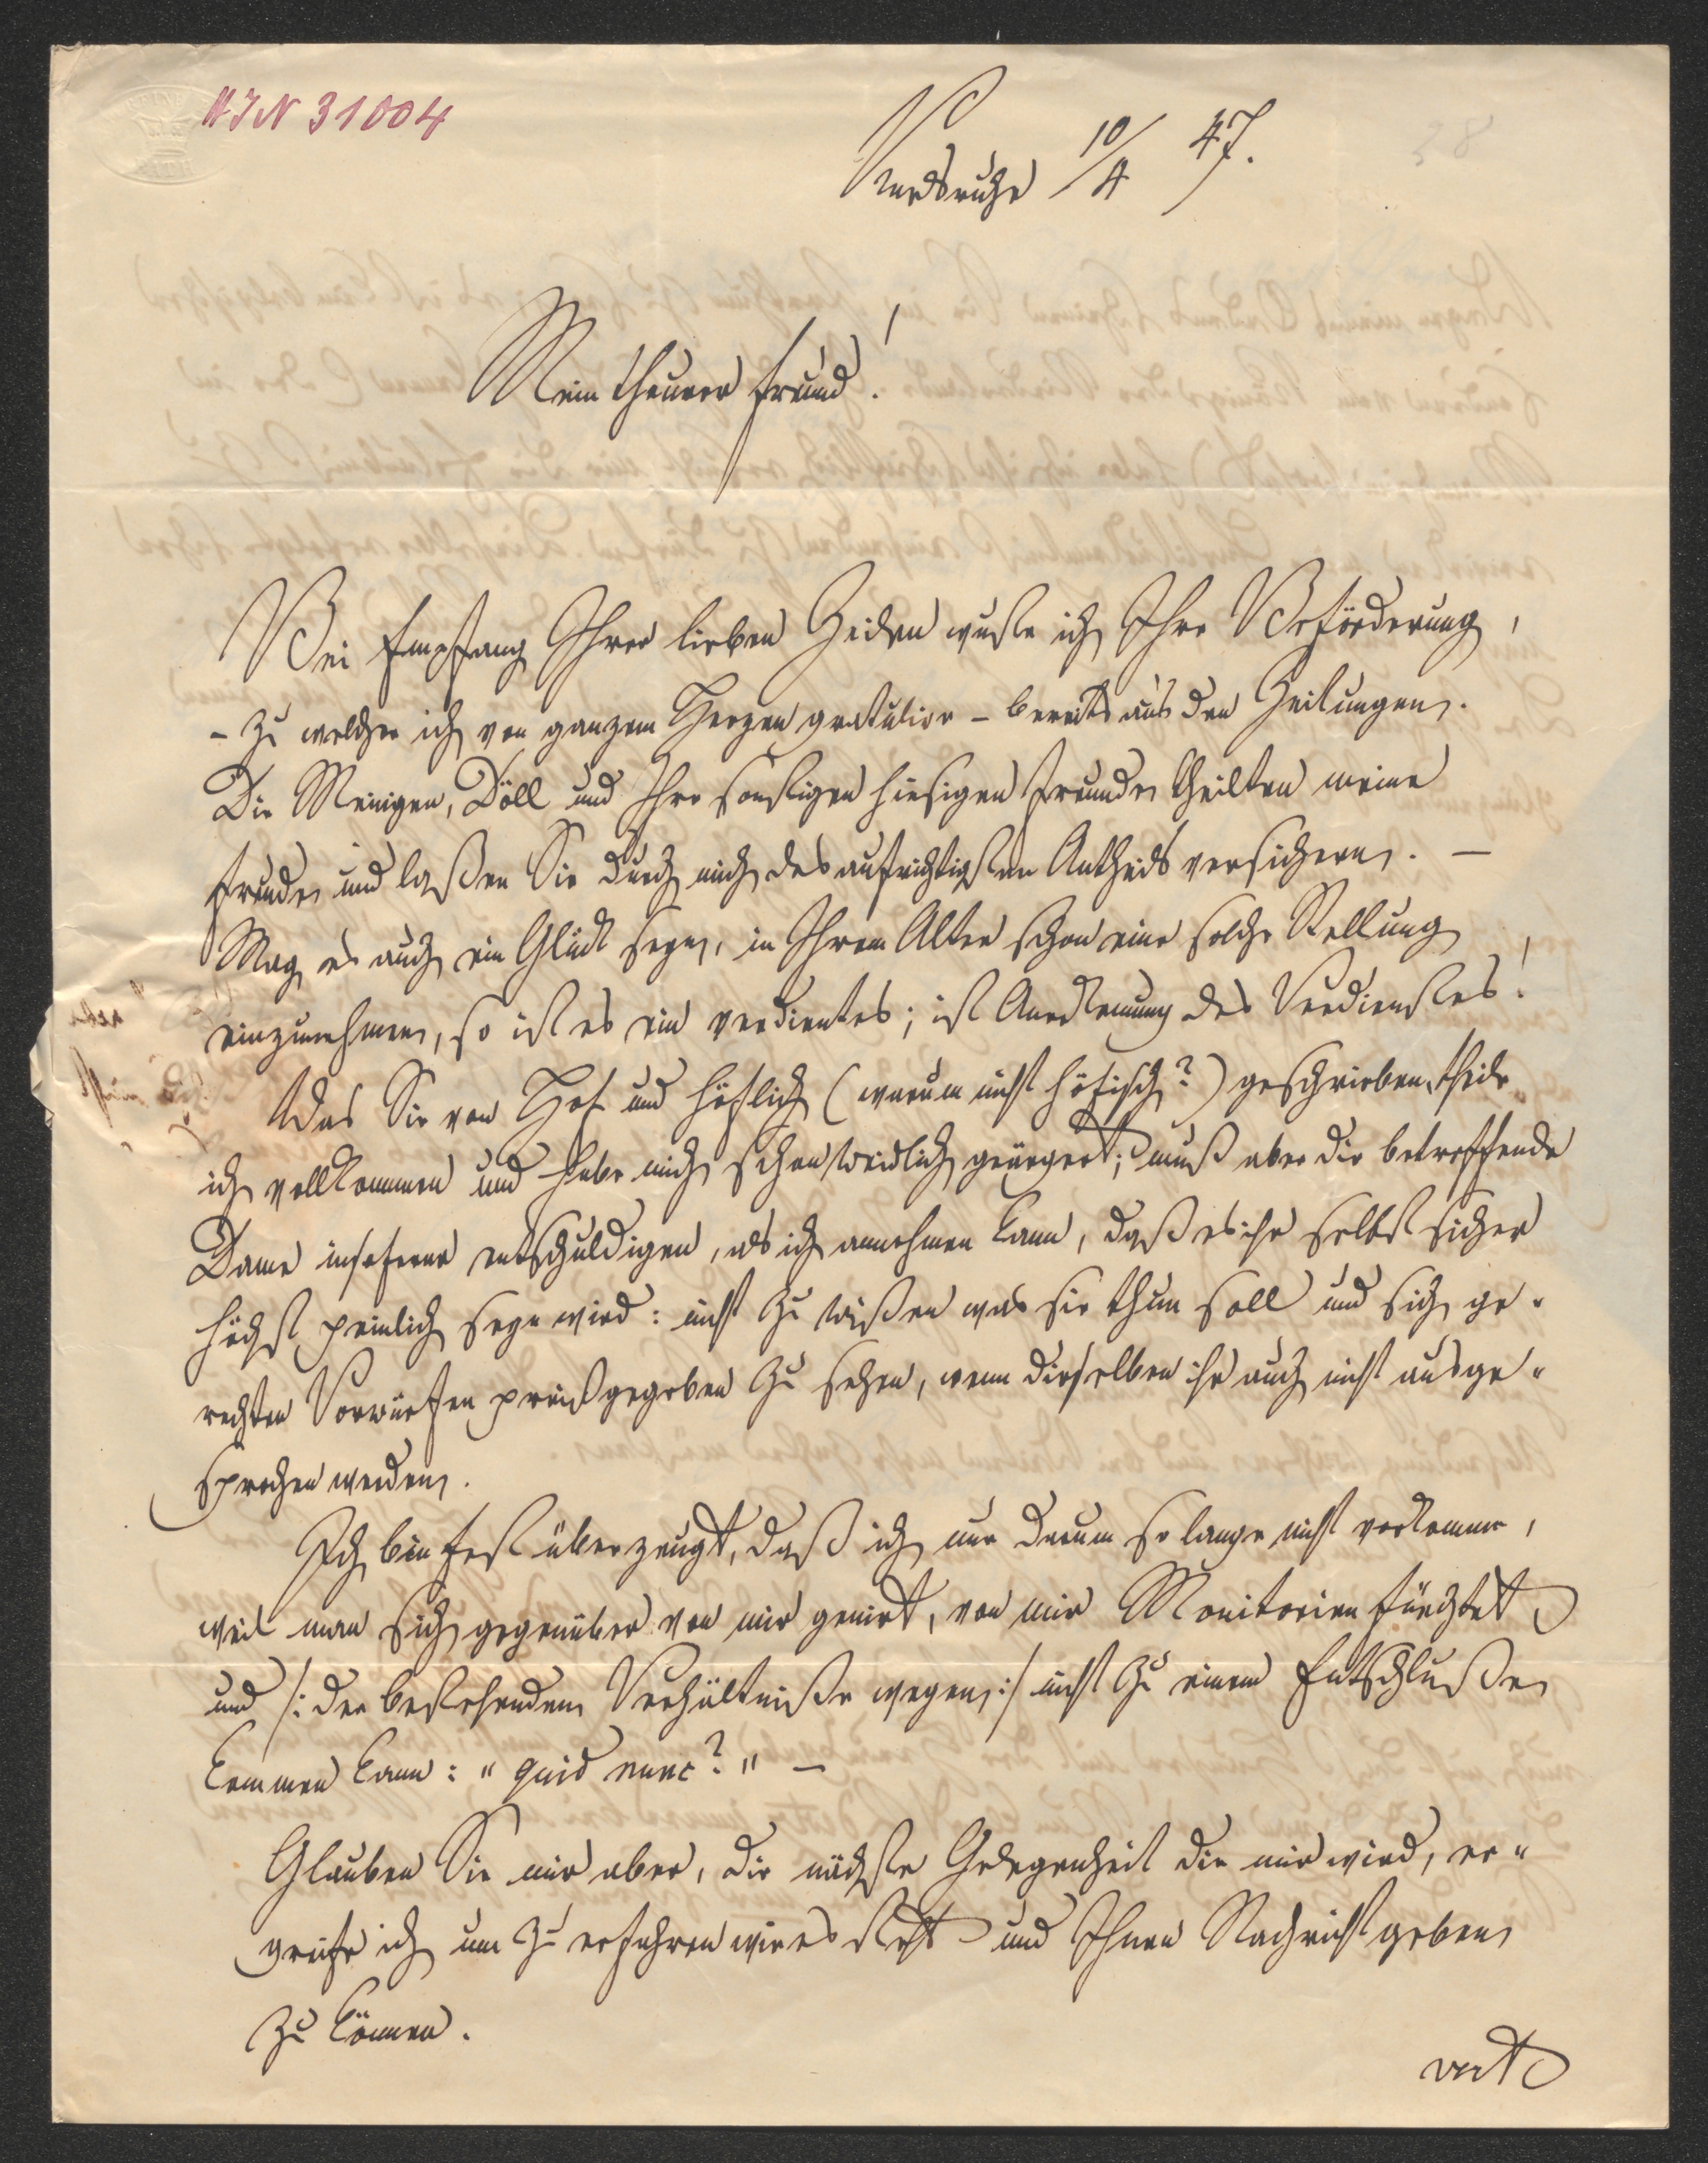 HIN 31004
38
Karlsruhe 10/4 47.
Mein theurer Freund!
Bei Empfang Ihrer lieben Zeilen wußte ich Ihre Beförderung,
– zu welcher ich von ganzem Herzen gratulire – bereits aus den Zeitungen.
Die Meinigen, Döll und Ihre sonstigen hiesigen Freunde theilten meine
Freude und laßen Sie durch mich des aufrichtigsten Antheils versichern. –
Mag es auch ein Glück seyn, in Ihrem Alter schon eine solche Stellung
einzunehmen, so ist es ein verdientes; ist Anerkennung des Verdienstes!
Was Sie von Hof und höflich (warum nicht höfisch?) geschrieben, theile
ich vollkommen und habe mich schon weidlich geärgert; muß aber die betreffende
Dame insoferne entschuldigen, als ich annehmen kann, daß es ihr selbst sicher
höchst peinlich seyn wird: nicht zu wißen was sie thun soll und sich ge-
rechten Vorwürfen preißgegeben zu sehen, wenn dieselben ihr auch nicht ausge-
sprochen werden.
Ich bin fest überzeugt, daß ich nur darum so lange nicht vorkomme,
weil man sich gegenüber von mir genirt, von mir Monitorien fürchtet
und /: der bestehenden Verhältniße wegen :/ nicht zu einem Entschluße
kommen kann: "quid nunc?" –
Glauben Sie mir aber, die nächste Gelegenheit die mir wird, er-
greife ich um zu erfahren wie es steht und Ihnen Nachricht geben
zu können.
vert